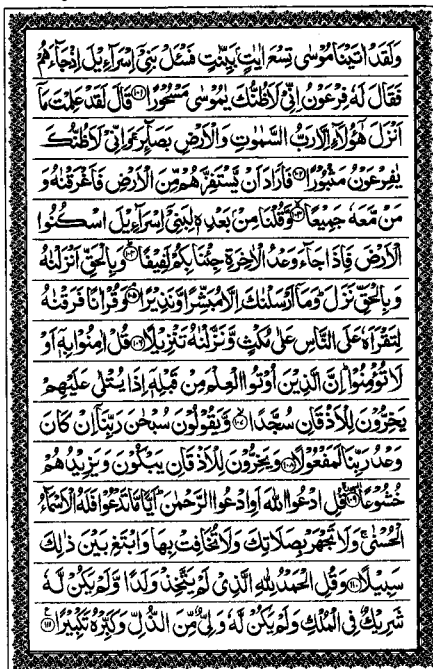 وَلَقَدْ اٰتَيْنَا مُوْسٰى تِسْعَ اٰيٰتٍۢ بَيِّنٰتٍ فَسْـَٔلْ بَنِيْٓ اِسْرَآءِيْلَ اِذْ جَآءَهُمْ
فَقَالَ لَهٗ فِرْعَوْنُ اِنِّيْ لَاَظُنُّكَ يٰمُوْسٰى مَسْحُوْرًا ۝۱۰۱ قَالَ لَقَدْ عَلِمْتَ مَآ
اَنْزَلَ هٰٓؤُلَآءِ اِلَّا رَبُّ السَّمٰوٰتِ وَالْاَرْضِ بَصَآئِرَ ۚ وَاِنِّيْ لَاَظُنُّكَ
يٰفِرْعَوْنُ مَثْبُوْرًا ۝۱۰۲ فَاَرَادَ اَنْ يَّسْتَفِزَّهُمْ مِّنَ الْاَرْضِ فَاَغْرَقْنٰهُ وَ
مَنْ مَّعَهٗ جَمِيْعًا ۝۱۰۳ وَّقُلْنَا مِنْۢ بَعْدِهٖ لِبَنِيْٓ اِسْرَآءِيْلَ اسْكُنُوا
الْاَرْضَ فَاِذَا جَآءَ وَعْدُ الْاٰخِرَةِ جِئْنَا بِكُمْ لَفِيْفًا ۝۱۰۴ وَبِالْحَقِّ اَنْزَلْنٰهُ
وَبِالْحَقِّ نَزَلَ ۗ وَمَآ اَرْسَلْنٰكَ اِلَّا مُبَشِّرًا وَّنَذِيْرًا ۝۱۰۵ وَقُرْاٰنًا فَرَقْنٰهُ
لِتَقْرَاَهٗ عَلَى النَّاسِ عَلٰى مُكْثٍ وَّنَزَّلْنٰهُ تَنْزِيْلًا ۝۱۰۶ قُلْ اٰمِنُوْا بِهٖٓ اَوْ
لَا تُؤْمِنُوْا ۗ اِنَّ الَّذِيْنَ اُوْتُوا الْعِلْمَ مِنْ قَبْلِهٖٓ اِذَا يُتْلٰى عَلَيْهِمْ
يَخِرُّوْنَ لِلْاَذْقَانِ سُجَّدًا ۝۱۰۷ وَّيَقُوْلُوْنَ سُبْحٰنَ رَبِّنَآ اِنْ كَانَ
وَعْدُ رَبِّنَا لَمَفْعُوْلًا ۝۱۰۸ وَيَخِرُّوْنَ لِلْاَذْقَانِ يَبْكُوْنَ وَيَزِيْدُهُمْ
خُشُوْعًا ۝۱۰۹ قُلِ ادْعُوا اللّٰهَ اَوِ ادْعُوا الرَّحْمٰنَ ۗ اَيًّا مَّا تَدْعُوْا فَلَهُ الْاَسْمَآءُ
الْحُسْنٰى ۚ وَلَا تَجْهَرْ بِصَلَاتِكَ وَلَا تُخَافِتْ بِهَا وَابْتَغِ بَيْنَ ذٰلِكَ
سَبِيْلًا ۝۱۱۰ وَقُلِ الْحَمْدُ لِلّٰهِ الَّذِيْ لَمْ يَتَّخِذْ وَلَدًا وَّلَمْ يَكُنْ لَّهٗ
شَرِيْكٌ فِي الْمُلْكِ وَلَمْ يَكُنْ لَّهٗ وَلِيٌّ مِّنَ الذُّلِّ وَكَبِّرْهُ تَكْبِيْرًا ۝۱۱۱